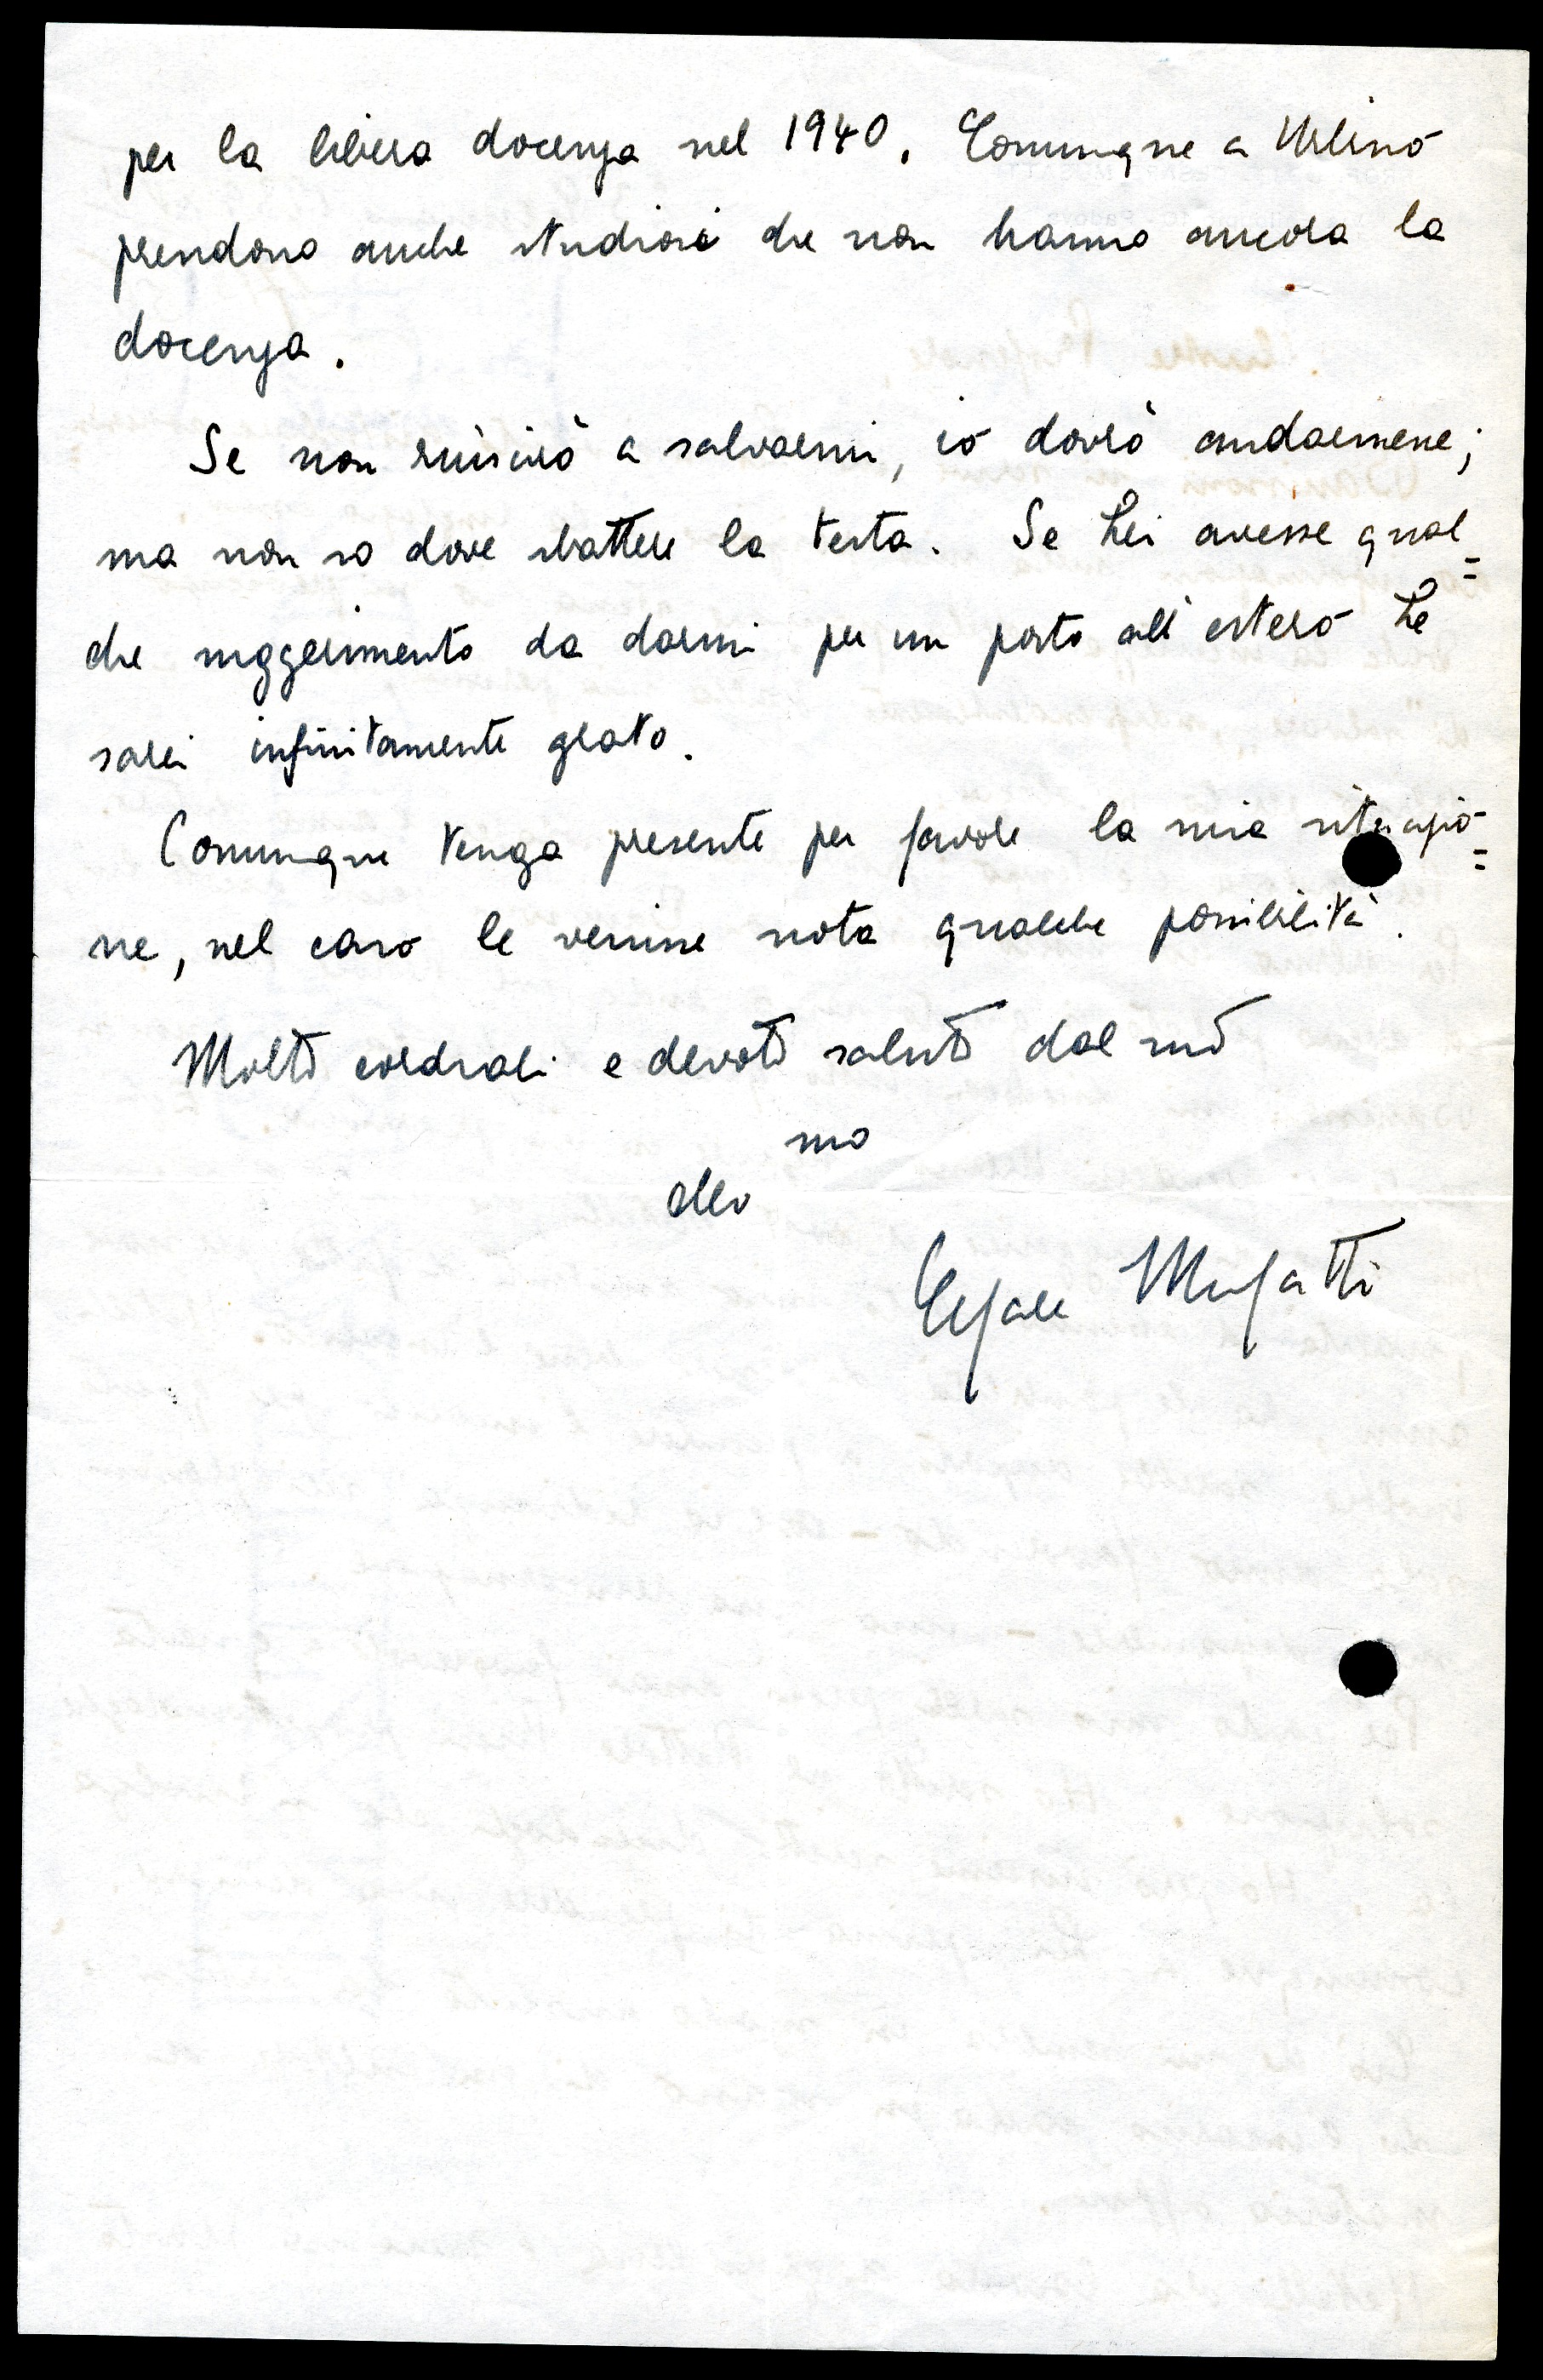 per la libera docenza nel 1940. Comunque a Urbino
prendono anche studiosi che non hanno ancora la
docenza.
Se non riuscirò a salvarmi, io dovrò andarmene;
ma non so dove sbattere la testa. Se Lei avesse qual=
che suggerimento da darmi per un posto all'estero Le
sarei infinitamente grato.
Comunque tenga presente per favore la mia situazio=
ne, nel caso le venisse nota qualche possibilità.
Molti cordiali e devoti saluti dal suo
mo
dev
Cesare Musatti